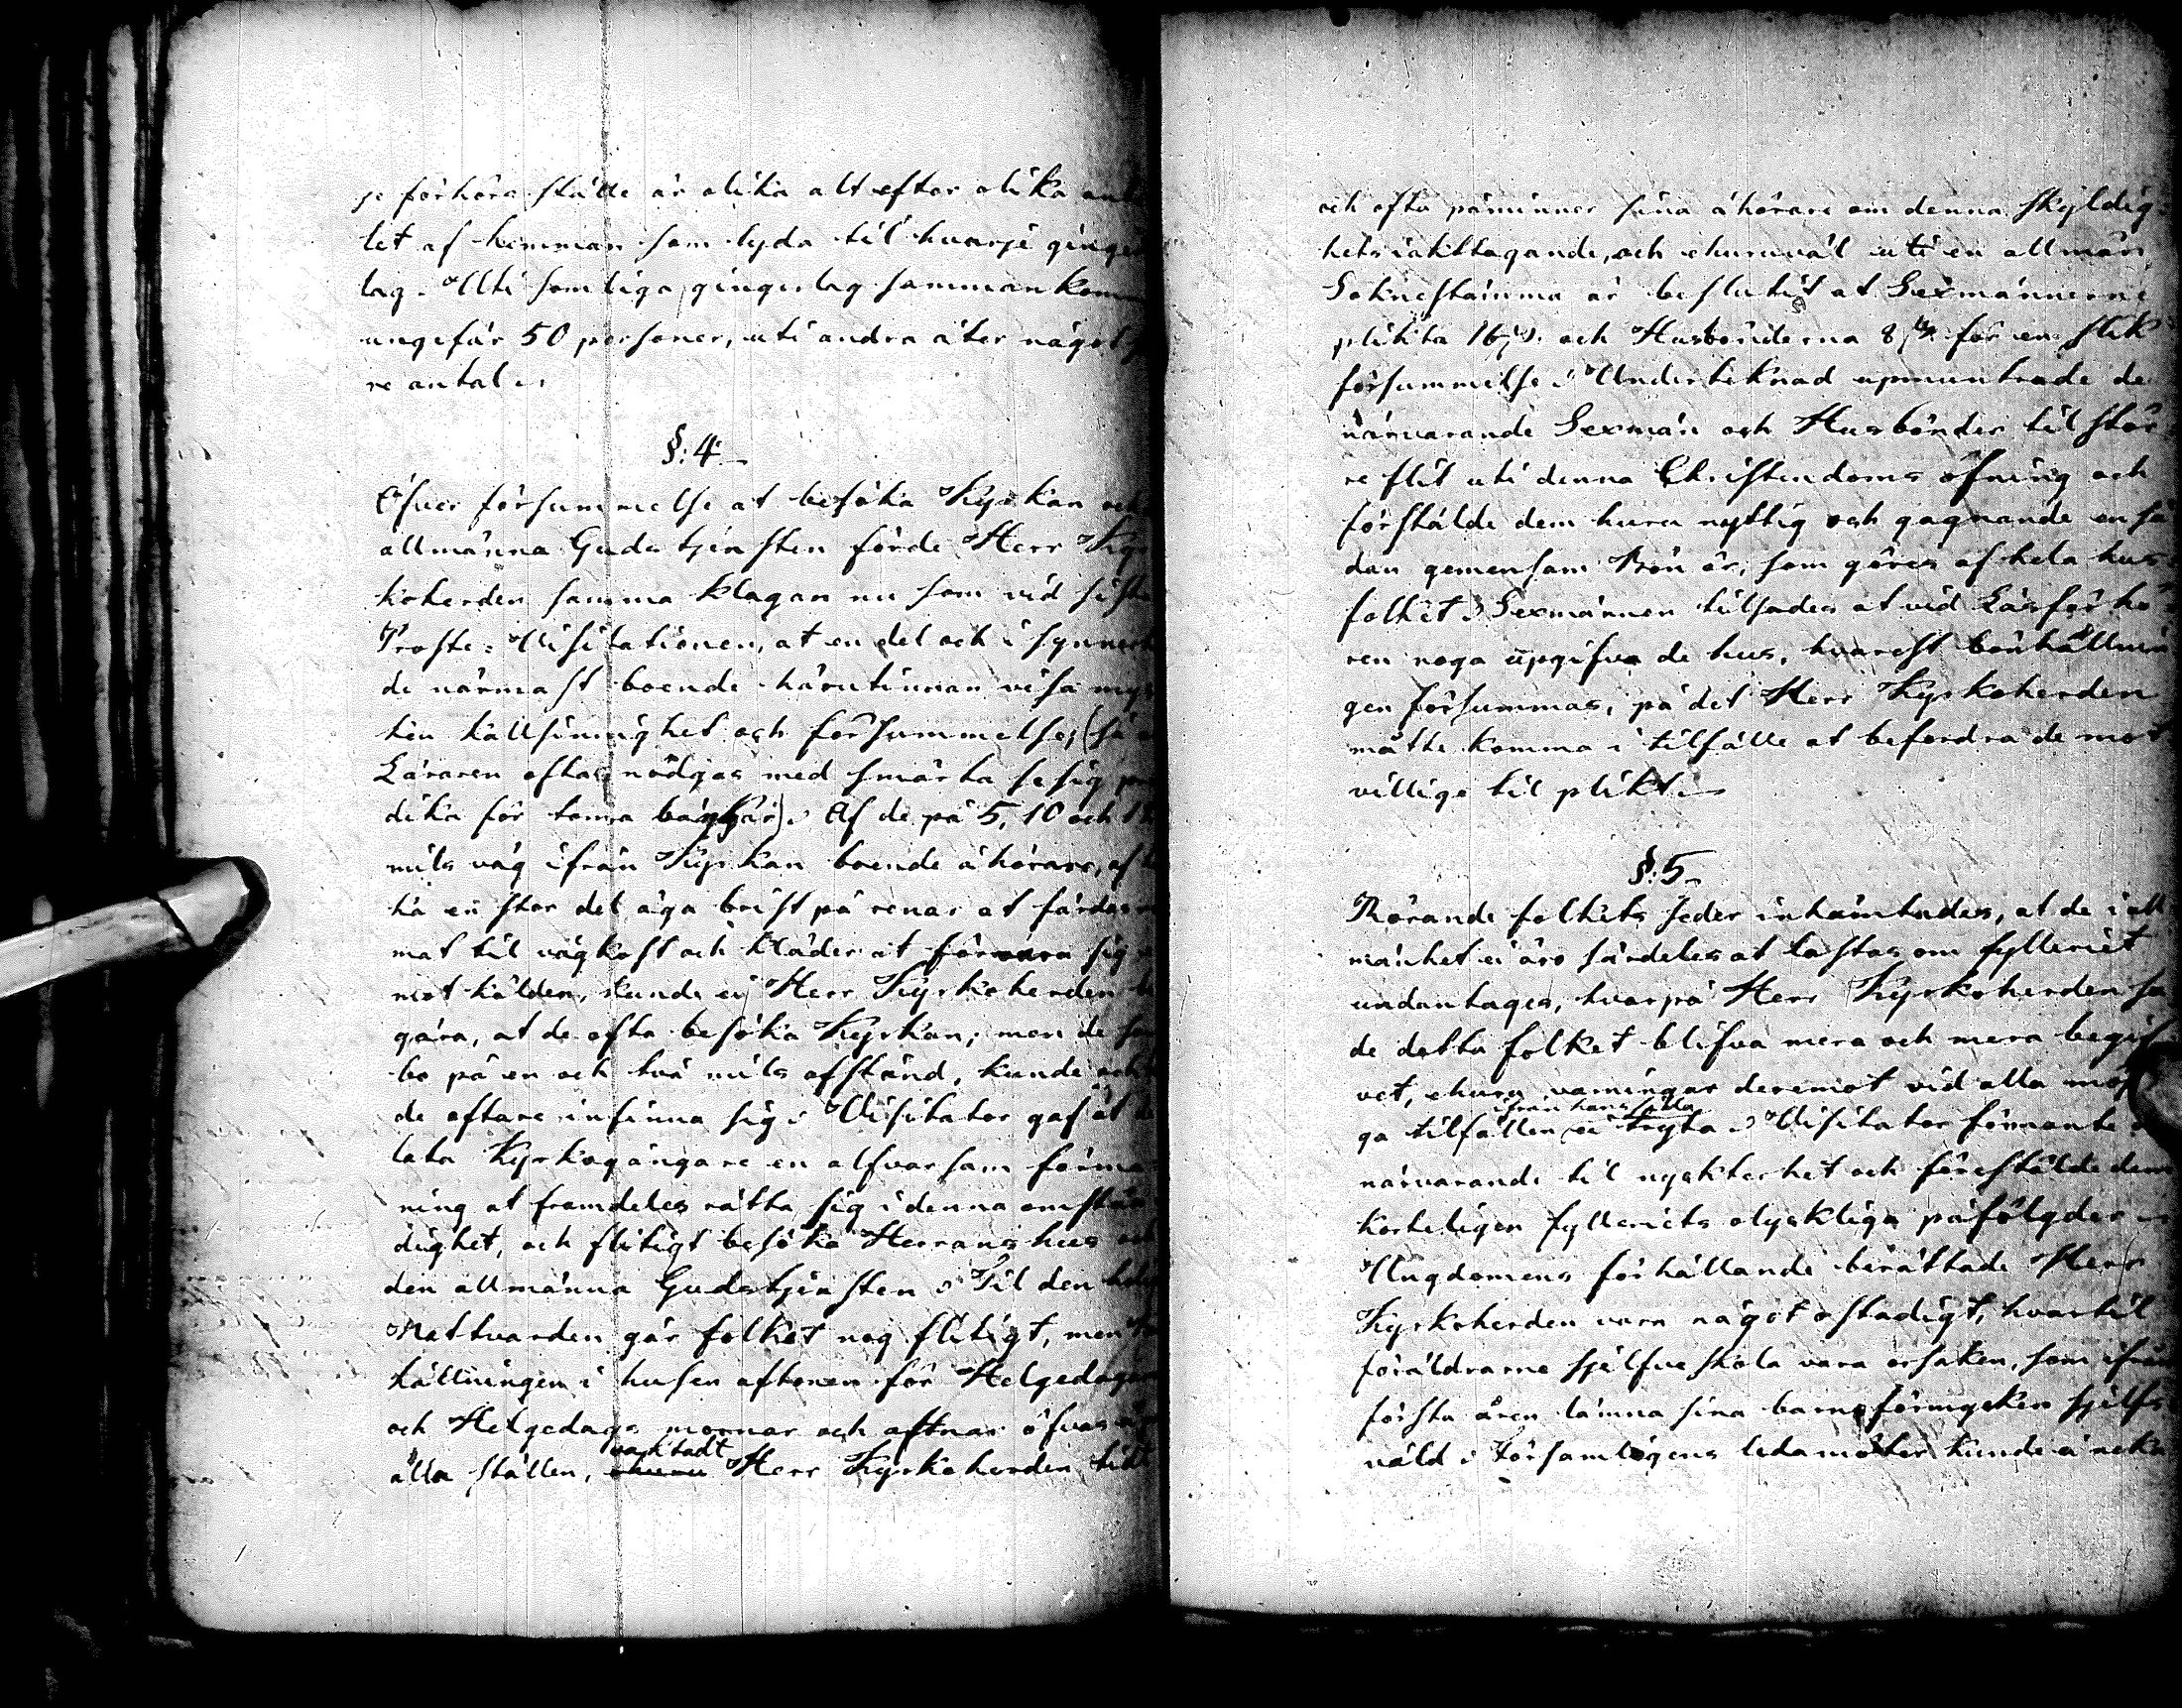 se förhörs ställe är olika alt efter olika
let af hemman som lyda til hvarje
lag. Uti somliga gingerlag samman
ungefär 50 personer, uti andra åter något
re antal.
§: 4.
Öfver försummelse at besöka Kyrkan
allmänna Gudstjensten förde Herr
koherden samma klagan nu som vid sista
Prosts-Visitationen, at en del och i
de närmast boende härutinnan visa
ken kallsinnighet och försummelse, (så
Läraren oftas nödgas med smärta se sig
dika för toma bänkar). Af de på 5, 10 och
mils väg ifrån Kyrkan boende åhörare,
ka en stor del äga brist på renar at
mat til vägkost och kläder at förvara sig
mot kölden, kunde ej Herr Kyrkoherden
gära, at de ofta besöka Kyrkan; men de
bo på en och två mils afstånd, kunde
de oftare infinna sig. Visitator gaf åt
lata Kyrkogångare en alfvarsam
ning at framdeles rätta sig i denna
dighet, och flitigt besöka Herrans hus
den allmänna Gudstjensten. Til den
Nattvarden går folket nog flitigt, men
hållningen i husen aftonen för
och Helgedags mornar och aftnar öfvas
alla ställen, vacktadt Herr Kyrkoherden
och ofta påminner sina åhörare om denna skyldig-
hets iakttagande, och ehuruväl uti en allmän
Soknestämma är beslutit at Sexmännerne
plikta 16 s. och Husbönderna 8 s. för en slik
försummelse. Underteknad upmuntrade de
närvarande Sexmän och Husbönder til stör
re flit uti denna Christendoms öfning och
förstälde dem huru nyttig och gagnande en så
dan gemensam Bön är, som göres af hela hus-
folket. Sexmännen tilsades at vid Läsförhö-
ren noga upgifva de hus, hvarest bönhållnin
gen försummas, på det Herr Kyrkoherden
måtte komma i tilfälle at befordra de mot
villige til plikt.
§: 5.
Rörande folkets seder inhämtades, at de i all
mänhet ei äro särdeles at lastas om fylleriet
undantages, hvarpå Herr Kyrkoherden sa
de detta folket blifva mera och mera
vet, ehuru varningar deremot vid alla
ifrån hans sida
ga tilfällen ei tryta. Visitator förmante
närvarande til nyckterhet och förestälde dem
korteligen fylleriets olyckliga påfölgder
Ungdomens förhållande berättade Herr
Kyrkoherden vara något ostadigt, hvartil
föräldrarne sjelfve skola vara orsaken, som ifrån
första åren lämna sina barn förmycken sjelfs
våld. Församlingens ledamöter kunde ei neka